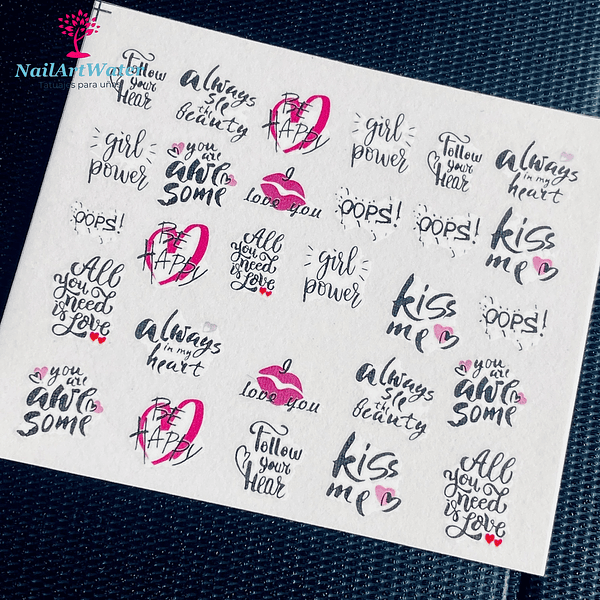 NailArtWater
Tatuajes para uñas
Follow
your
Hear
always
see
the
beauty
BE
HAPPY
girl
power
Follow
your
Hear
always
in my
heart
girl
power
you
are
awe
some
I
love you
OOPS!
OOPS!
kiss
me
OOPS!
BE
HAPPY
All
you
need
is Love
girl
power
kiss
me
OOPS!
All
you
need
is
Love
always
in my
heart
I
love you
always
see
the
beauty
you
are
awe
some
you
are
awe
some
BE
HAPPY
Follow
your
Hear
kiss
me
All
you
need
is
Love